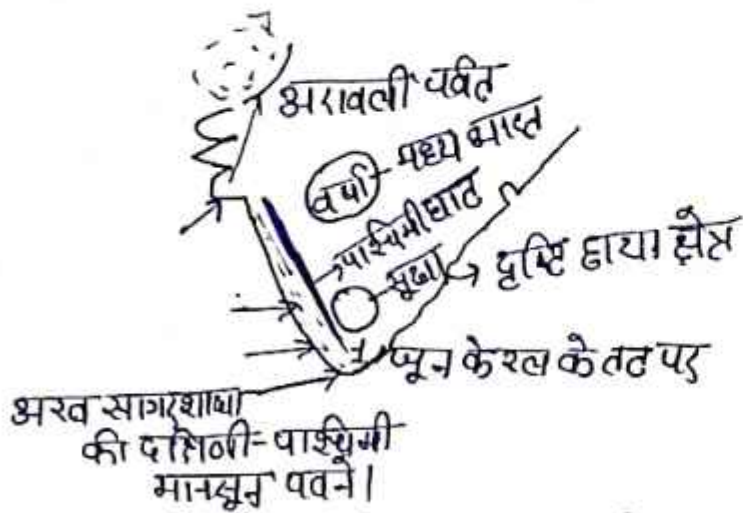 अरावली पर्वत
वर्षा - मध्य भारत
पाश्चिमी घाट
सूखा
दृष्टि छाया क्षेत्र
1 जून केरल के तट पर
अरब सागर शाखा
की दक्षिणी-पाश्चिमी
मानसून पवने।